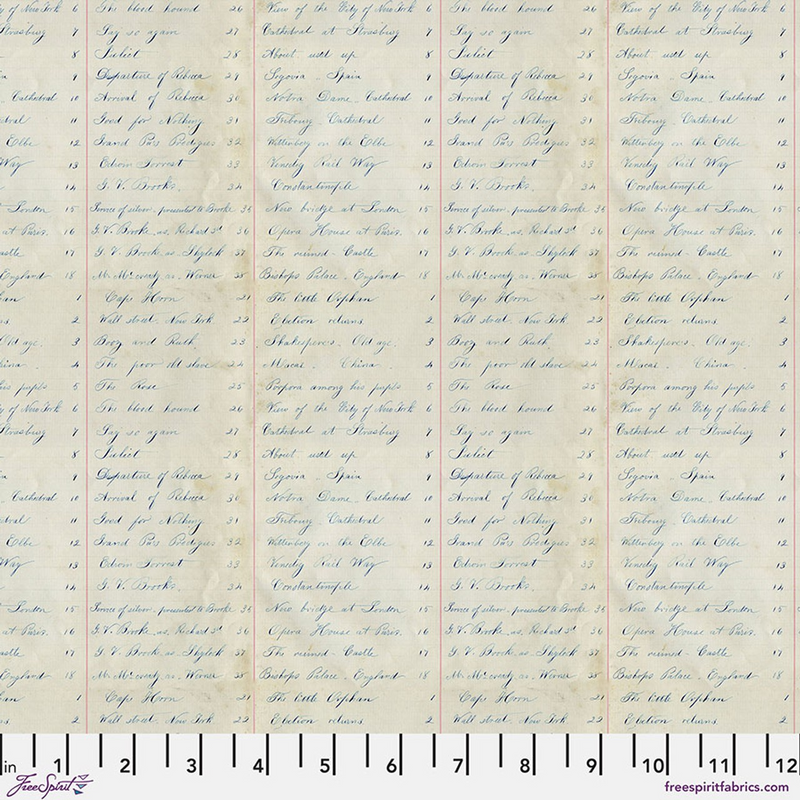 y of New York 6 The blood hound 26 View of the City of New York 6 The blood hound 26 View of the City of New York 6
Strasburg 7 Say so again 27 Cathedral at Strasburg 7 Say so again 27 Cathedral at Strasburg 7
8 Juliet 28 About used up 8 Juliet 28 About used up 8
9 Departure of Rebecca 29 Segovia - Spain 9 Departure of Rebecca 29 Segovia - Spain 9
Cathedral 10 Arrival of Rebecca 30 Notra Dame - Cathedral 10 Arrival of Rebecca 30 Notra Dame - Cathedral 10
dral 11 Good for Nothing 31 Fribourg Cathedral 11 Good for Nothing 31 Fribourg Cathedral 11
Elbe 12 Grand Pa's Prodigies 32 Wittenberg on the Elbe 12 Grand Pa's Prodigies 32 Wittenberg on the Elbe 12
Way 13 Edwin Forrest 33 Rail Way 13 Edwin Forrest 33 Rail Way 13
14 G. V. Brooks. 34 Constantinople 14 G. V. Brooks. 34 Constantinople 14
London 15 Service of silver, presented to Brooke 35 New bridge at London 15 Service of silver, presented to Brooke 35 New bridge at London 15
at Paris. 16 G. V. Brooke, as, Richard 3d 36 Opera House at Paris. 16 G. V. Brooke, as, Richard 3d 36 Opera House at Paris. 16
astle 17 G. V. Brook, as Shylock 37 The ruined - Castle 17 G. V. Brook, as Shylock 37 The ruined - Castle 17
England 18 as - Werner 38 Bishops Palace - England 18 as - Werner 38 Bishops Palace - England 18
han 1 Cape Horn 21 The little Orphan 1 Cape Horn 21 The little Orphan 1
ns. 2 Wall street, New York 22 Election returns 2 Wall street, New York 22 Election returns 2
Old age. 3 Boaz and Ruth 23 Shakespere's Old age. 3 Boaz and Ruth 23 Shakespere's Old age. 3
hina . 4 The poor old slave 24 Macao . China . 4 The poor old slave 24 Macao . China . 4
his pupils 5 The Rose 25 Porpora among his pupils 5 The Rose 25 Porpora among his pupils 5
y of New York 6 The blood hound 26 View of the City of New York 6 The blood hound 26 View of the City of New York 6
Strasburg 7 Say so again 27 Cathedral at Strasburg 7 Say so again 27 Cathedral at Strasburg 7
8 Juliet 28 About used up 8 Juliet 28 About used up 8
9 Departure of Rebecca 29 Segovia - Spain 9 Departure of Rebecca 29 Segovia - Spain 9
Cathedral 10 Arrival of Rebecca 30 Notra Dame - Cathedral 10 Arrival of Rebecca 30 Notra Dame - Cathedral 10
dral 11 Good for Nothing 31 Fribourg Cathedral 11 Good for Nothing 31 Fribourg Cathedral 11
Elbe 12 Grand Pa's Prodigies 32 Wittenberg on the Elbe 12 Grand Pa's Prodigies 32 Wittenberg on the Elbe 12
Way 13 Edwin Forrest 33 Rail Way 13 Edwin Forrest 33 Rail Way 13
14 G. V. Brooks. 34 Constantinople 14 G. V. Brooks. 34 Constantinople 14
London 15 Service of silver, presented to Brooke 35 New bridge at London 15 Service of silver, presented to Brooke 35 New bridge at London 15
at Paris. 16 G. V. Brooke, as, Richard 3d 36 Opera House at Paris. 16 G. V. Brooke, as, Richard 3d 36 Opera House at Paris. 16
astle 17 G. V. Brook, as Shylock 37 The ruined - Castle 17 G. V. Brook, as Shylock 37 The ruined - Castle 17
England 18 as - Werner 38 Bishops Palace - England 18 as - Werner 38 Bishops Palace - England 18
han 1 Cape Horn 21 The little Orphan 1 Cape Horn 21 The little Orphan 1
ns. 2 Wall street, New York 22 Election returns 2 Wall street, New York 22 Election returns 2
in 1 2 3 4 5 6 7 8 9 10 11 12
FreeSpirit
freespiritfabrics.com